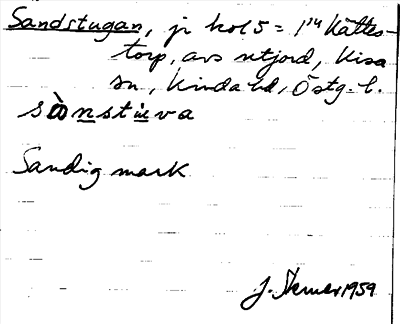 Sandstugan, jr kol 5 = 1/4 Kättes-
torp, avs utjord, Kisa
sn, Kinda hd, Östg. l.
sànstùva
Sandig mark
J. 1959